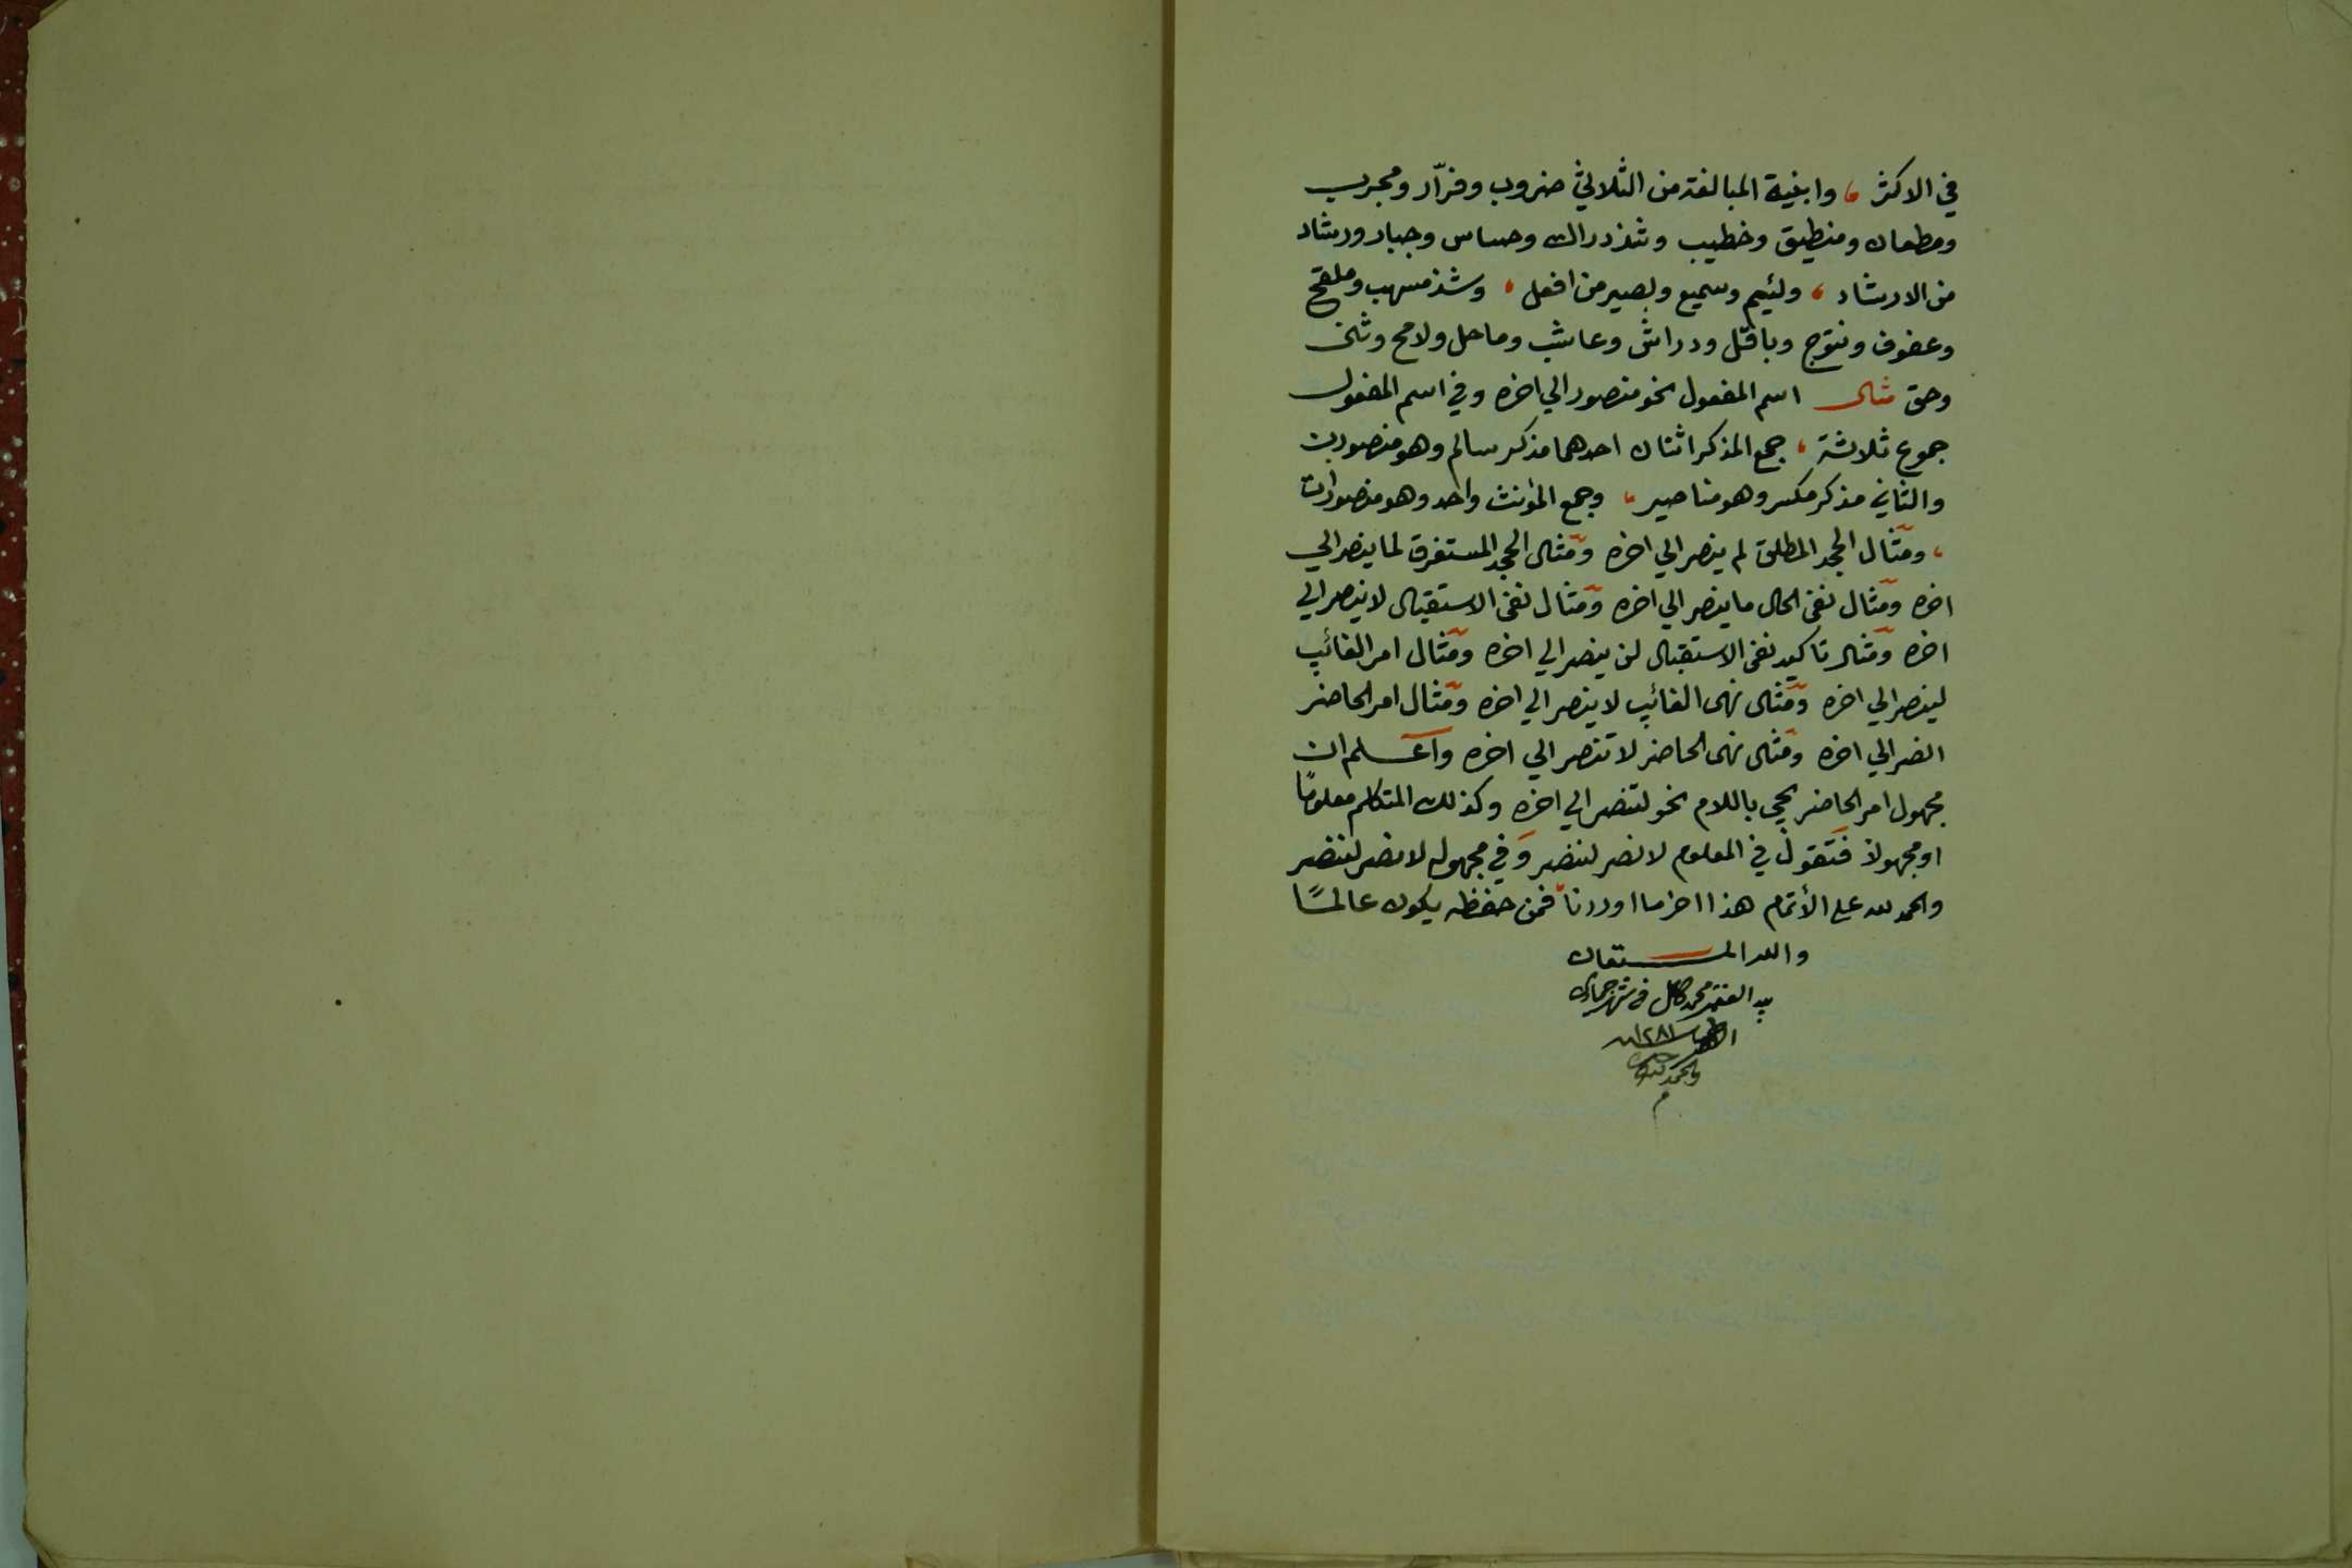 في الاكثر ، وابنية المبالغة من الثلاثي ضروب وفرّار ومجرب
ومطعان ومنطيق وخطيب وشذ دراك وحساس وجبار ورشاد
من الارشاد ، ولئيم وسميع وبصير من افعل ، وشذ مسهب وملقح
وعضوف ونتوج وباقل ودراش وعاشب وماحل ولامح وثنى
وحق مثال اسم المفعول نحو منصور الي اخره وفي اسم المفعول
جموع ثلاثة ، جمع المذكر اثنان احدهما مذكر سالم وهو منصورين
والثاني مذكر مكسر وهو مناصير ، وجمع المؤنث واحد وهو منصورات
، ومثال الجحد المطلق لم ينصر الي اخره ومثال الجحد المستغرق لما ينصر الي
اخره ومثال نفى الحال ما ينصر الي اخره ومثال نفى الاستقبال لا ينصر الي
اخره ومثال تاكيد نفى الاستقبال لن ينصر الي اخره ومثال امر الغائب
لينصر الي اخره ومثال نهى الغائب لا ينصر الي اخره ومثال امر الحاضر
انصر الي اخره ومثال نهى الحاضر لا تنصر الي اخره واعلم ان
مجهول امر الحاضر يجي باللام نحو لتنصر الي اخره وكذلك المتكلم معلومًا
او مجهولاً فتقول في المعلوم لانصر لننصر وفي مجهوله لانصر لننصر
والحمد لله علي الأتمام هذا اخر ما اوردنا فمن حفظه يكون عالمًا
والله المستعان
بيد الفقير محمد كامل في شهر جمادى
١٢٨١
والحمد لله
م